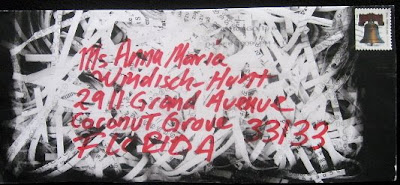 Ms Anna Maria
Windisch-Hunt
2911 Grand Avenue
Coconut Grove 33133
FLORIDA